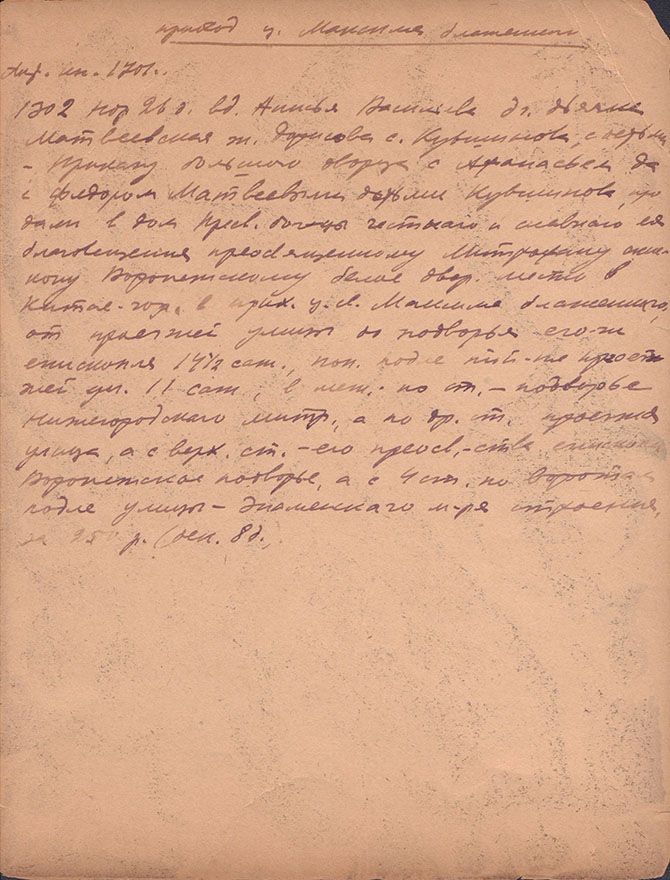 приход ц. Максима блаженного
кн. 1701.
1702 ноя 26 д. вд. Анисья Васильева
Матвеевская ж. Борисова с. Кувшинова, с детьми
- Приказу большого дворца с Афанасьем да
с Федором Матвеевыми детьми Кувшинова, про
дали в дом Пресв. б-цы честнаго и славнаго ея
благовещения преосвященному Митрофану епис-
копу Воронежскому белое двор. место в
Китае-гор. в прих. ц. Максима блаженного,
от проезжей улицы до подворья его-ж
епископля 14½ саж., поп. подле той-же проез
жей ул. 11 саж, в меж. - по ст. - подворье
Нижегородского митр., а по др. ст. проезжая
улица, а с верх. ст. - его преосв.-ства епископа
Воронежское подворье, а с 4 ст. по воротам
подле улицы - Знаменского м-ря строения,
за 250 р. (8 д.